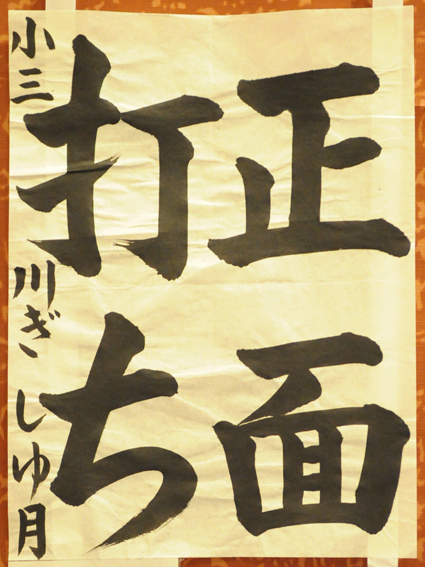 正面
打ち
小三 川ぎ しゅ月